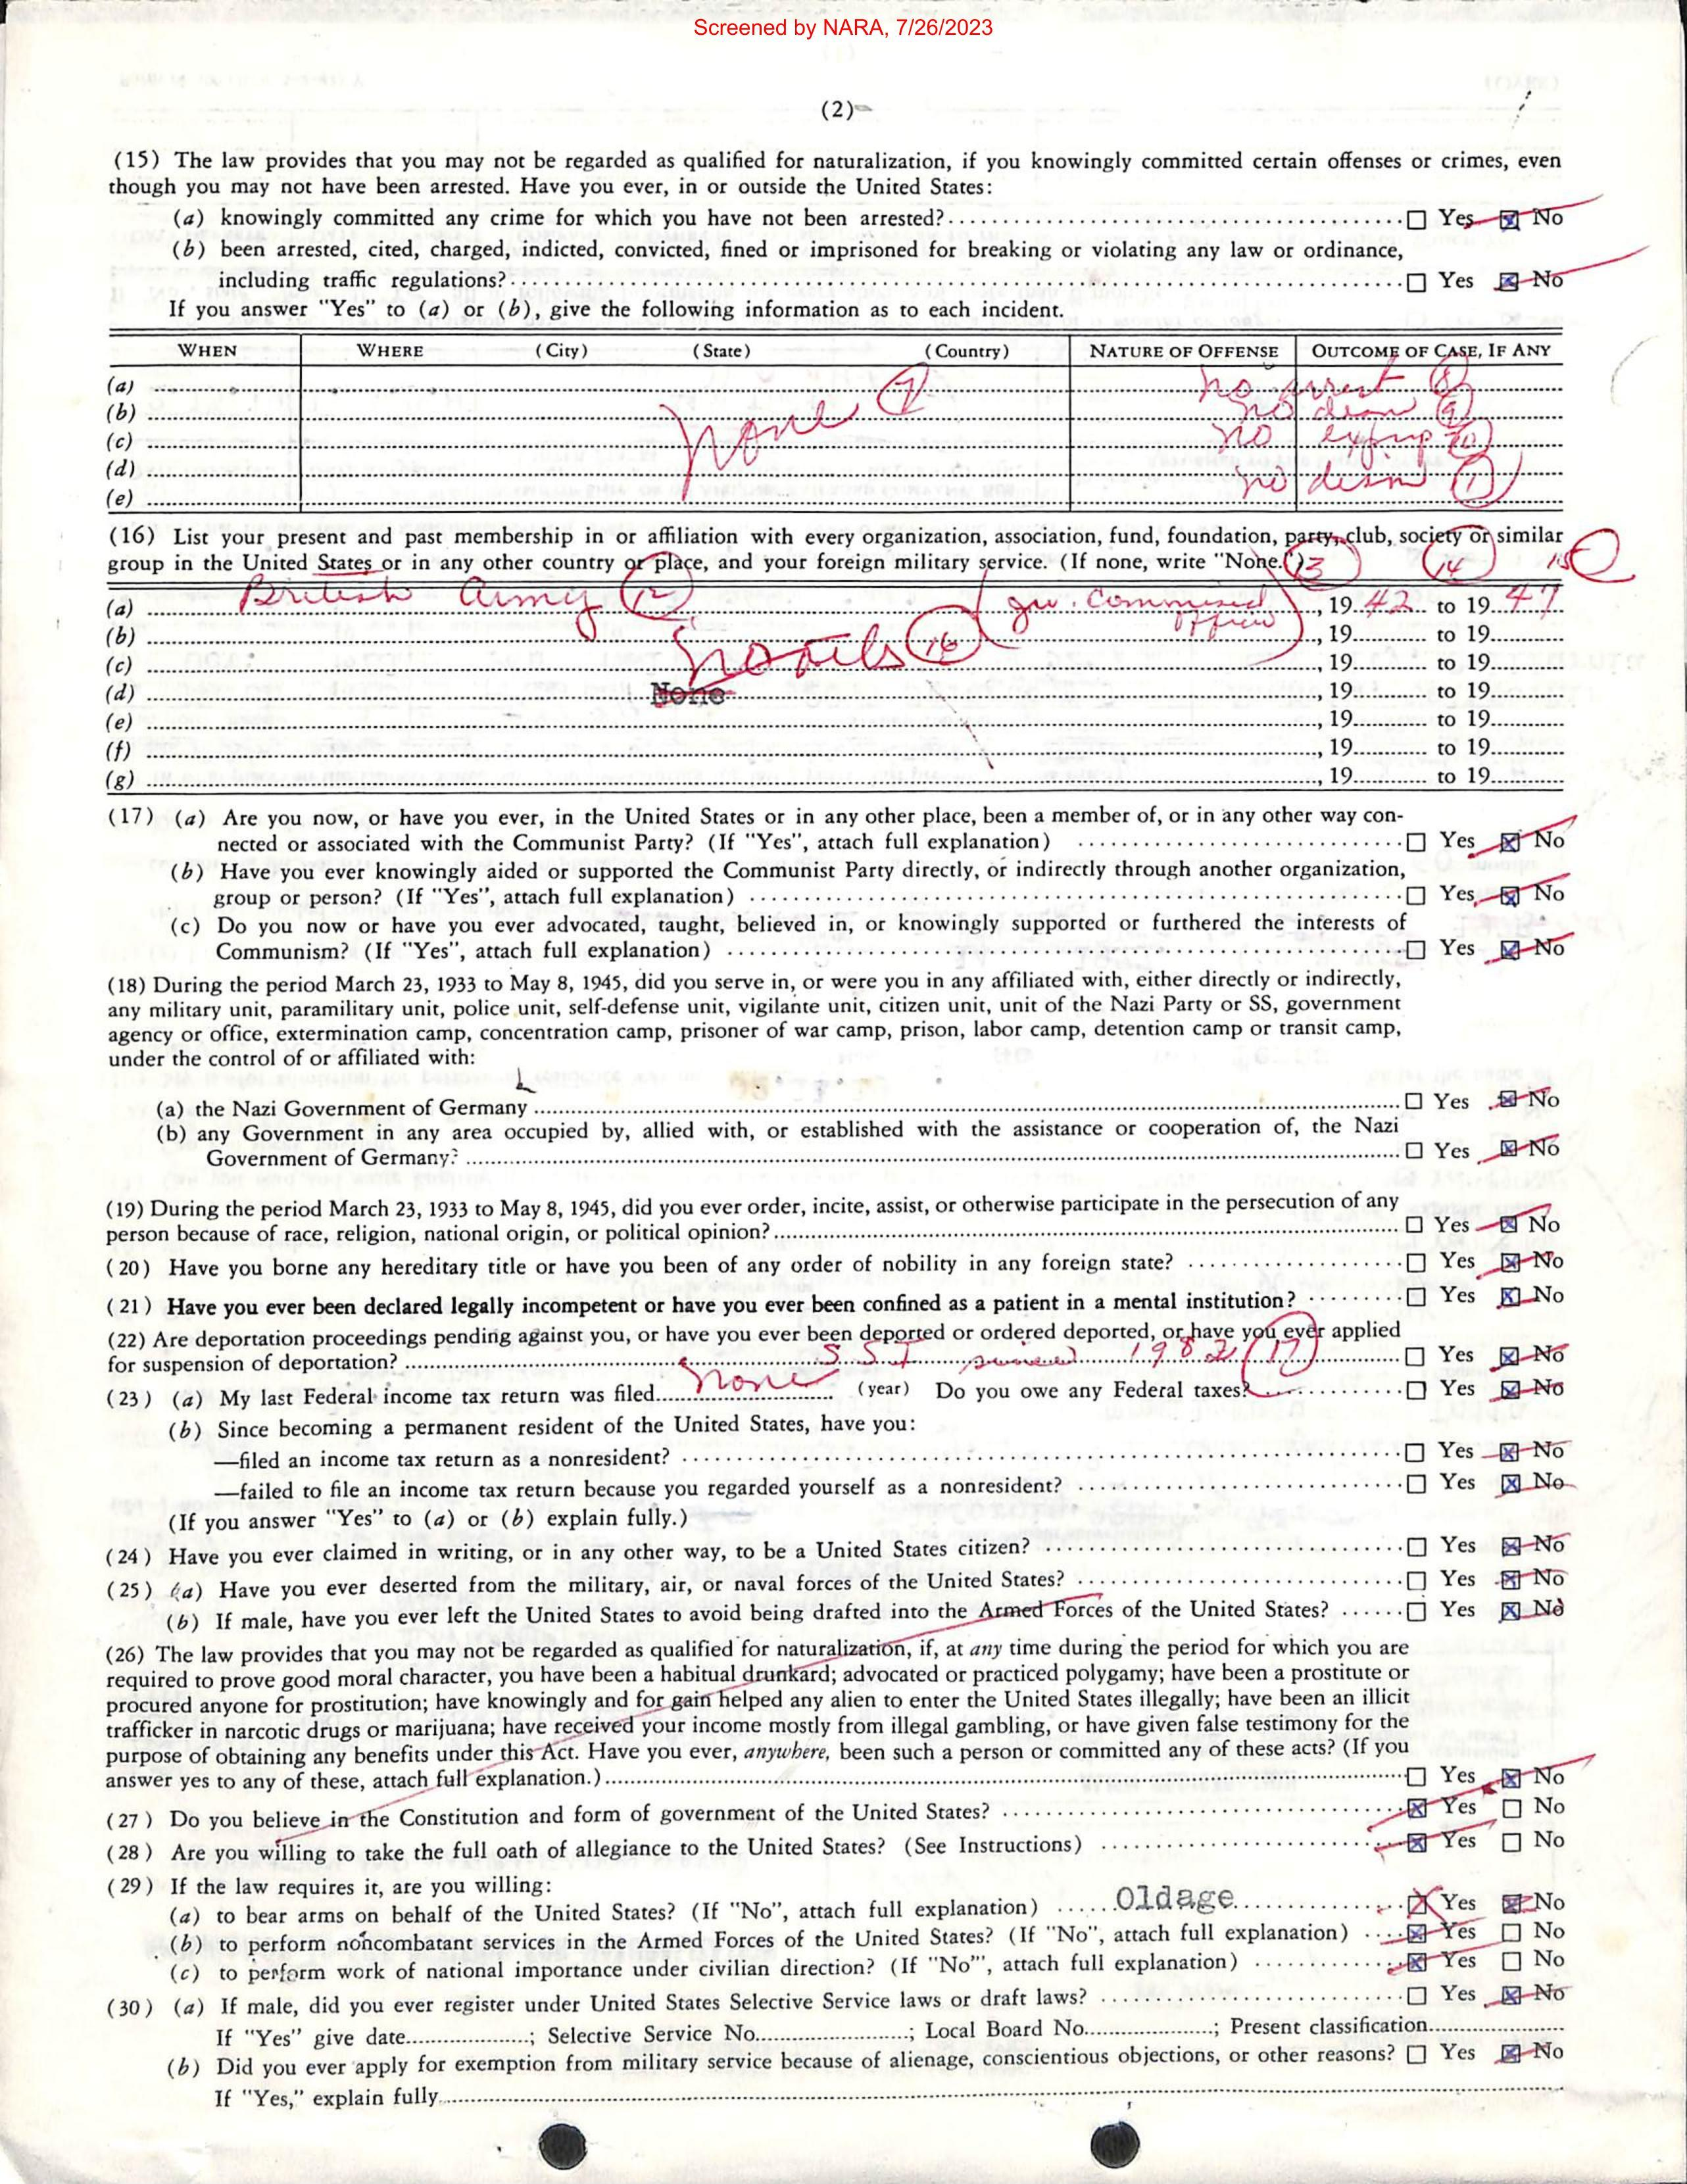 Screened by NARA, 7/26/2023
(2)
(15) The law provides that you may not be regarded as qualified for naturalization, if you knowingly committed certain offenses or crimes, even
though you may not have been arrested. Have you ever, in or outside the United States:
(a) knowingly committed any crime for which you have not been arrested? ☐ Yes ☒ No
(b) been arrested, cited, charged, indicted, convicted, fined or imprisoned for breaking or violating any law or ordinance,
including traffic regulations? ☐ Yes ☒ No
If you answer "Yes" to (a) or (b), give the following information as to each incident.
WHEN WHERE (City) (State) (Country) NATURE OF OFFENSE OUTCOME OF CASE, IF ANY
(a) 7 no arrest 8
(b) none no 9
(c) no
(d) no
(e)
(16) List your present and past membership in or affiliation with every organization, association, fund, foundation, party, club, society or similar
group in the United States or in any other country or place, and your foreign military service. (If none, write "None.") 13 14 15
(a) British Army 12 , 19 42 to 19 47
(b) officer , 19 to 19
(c) no 16 , 19 to 19
(d) None , 19 to 19
(e) , 19 to 19
(f) , 19 to 19
(g) , 19 to 19
(17) (a) Are you now, or have you ever, in the United States or in any other place, been a member of, or in any other way con-
nected or associated with the Communist Party? (If "Yes", attach full explanation) ☐ Yes ☒ No
(b) Have you ever knowingly aided or supported the Communist Party directly, or indirectly through another organization,
group or person? (If "Yes", attach full explanation) ☐ Yes ☒ No
(c) Do you now or have you ever advocated, taught, believed in, or knowingly supported or furthered the interests of
Communism? (If "Yes", attach full explanation) ☐ Yes ☒ No
(18) During the period March 23, 1933 to May 8, 1945, did you serve in, or were you in any affiliated with, either directly or indirectly,
any military unit, paramilitary unit, police unit, self-defense unit, vigilante unit, citizen unit, unit of the Nazi Party or SS, government
agency or office, extermination camp, concentration camp, prisoner of war camp, prison, labor camp, detention camp or transit camp,
under the control of or affiliated with:
(a) the Nazi Government of Germany ☐ Yes ☒ No
(b) any Government in any area occupied by, allied with, or established with the assistance or cooperation of, the Nazi
Government of Germany? ☐ Yes ☒ No
(19) During the period March 23, 1933 to May 8, 1945, did you ever order, incite, assist, or otherwise participate in the persecution of any
person because of race, religion, national origin, or political opinion? ☐ Yes ☒ No
(20) Have you borne any hereditary title or have you been of any order of nobility in any foreign state? ☐ Yes ☒ No
(21) Have you ever been declared legally incompetent or have you ever been confined as a patient in a mental institution? ☐ Yes ☒ No
(22) Are deportation proceedings pending against you, or have you ever been deported or ordered deported, or have you ever applied
for suspension of deportation? SSI since 1982 17 ☐ Yes ☒ No
(23) (a) My last Federal income tax return was filed none (year) Do you owe any Federal taxes? ☐ Yes ☒ No
(b) Since becoming a permanent resident of the United States, have you:
—filed an income tax return as a nonresident? ☐ Yes ☒ No
—failed to file an income tax return because you regarded yourself as a nonresident? ☐ Yes ☒ No
(If you answer "Yes" to (a) or (b) explain fully.)
(24) Have you ever claimed in writing, or in any other way, to be a United States citizen? ☐ Yes ☒ No
(25) (a) Have you ever deserted from the military, air, or naval forces of the United States? ☐ Yes ☒ No
(b) If male, have you ever left the United States to avoid being drafted into the Armed Forces of the United States? ☐ Yes ☒ No
(26) The law provides that you may not be regarded as qualified for naturalization, if, at any time during the period for which you are
required to prove good moral character, you have been a habitual drunkard; advocated or practiced polygamy; have been a prostitute or
procured anyone for prostitution; have knowingly and for gain helped any alien to enter the United States illegally; have been an illicit
trafficker in narcotic drugs or marijuana; have received your income mostly from illegal gambling, or have given false testimony for the
purpose of obtaining any benefits under this Act. Have you ever, anywhere, been such a person or committed any of these acts? (If you
answer yes to any of these, attach full explanation.) ☐ Yes ☒ No
(27) Do you believe in the Constitution and form of government of the United States? ☒ Yes ☐ No
(28) Are you willing to take the full oath of allegiance to the United States? (See Instructions) ☒ Yes ☐ No
(29) If the law requires it, are you willing:
(a) to bear arms on behalf of the United States? (If "No", attach full explanation) Oldage ☒ Yes ☒ No
(b) to perform noncombatant services in the Armed Forces of the United States? (If "No", attach full explanation) ☒ Yes ☐ No
(c) to perform work of national importance under civilian direction? (If "No", attach full explanation) ☒ Yes ☐ No
(30) (a) If male, did you ever register under United States Selective Service laws or draft laws? ☐ Yes ☒ No
If "Yes" give date ; Selective Service No. ; Local Board No. ; Present classification
(b) Did you ever apply for exemption from military service because of alienage, conscientious objections, or other reasons? ☐ Yes ☒ No
If "Yes," explain fully